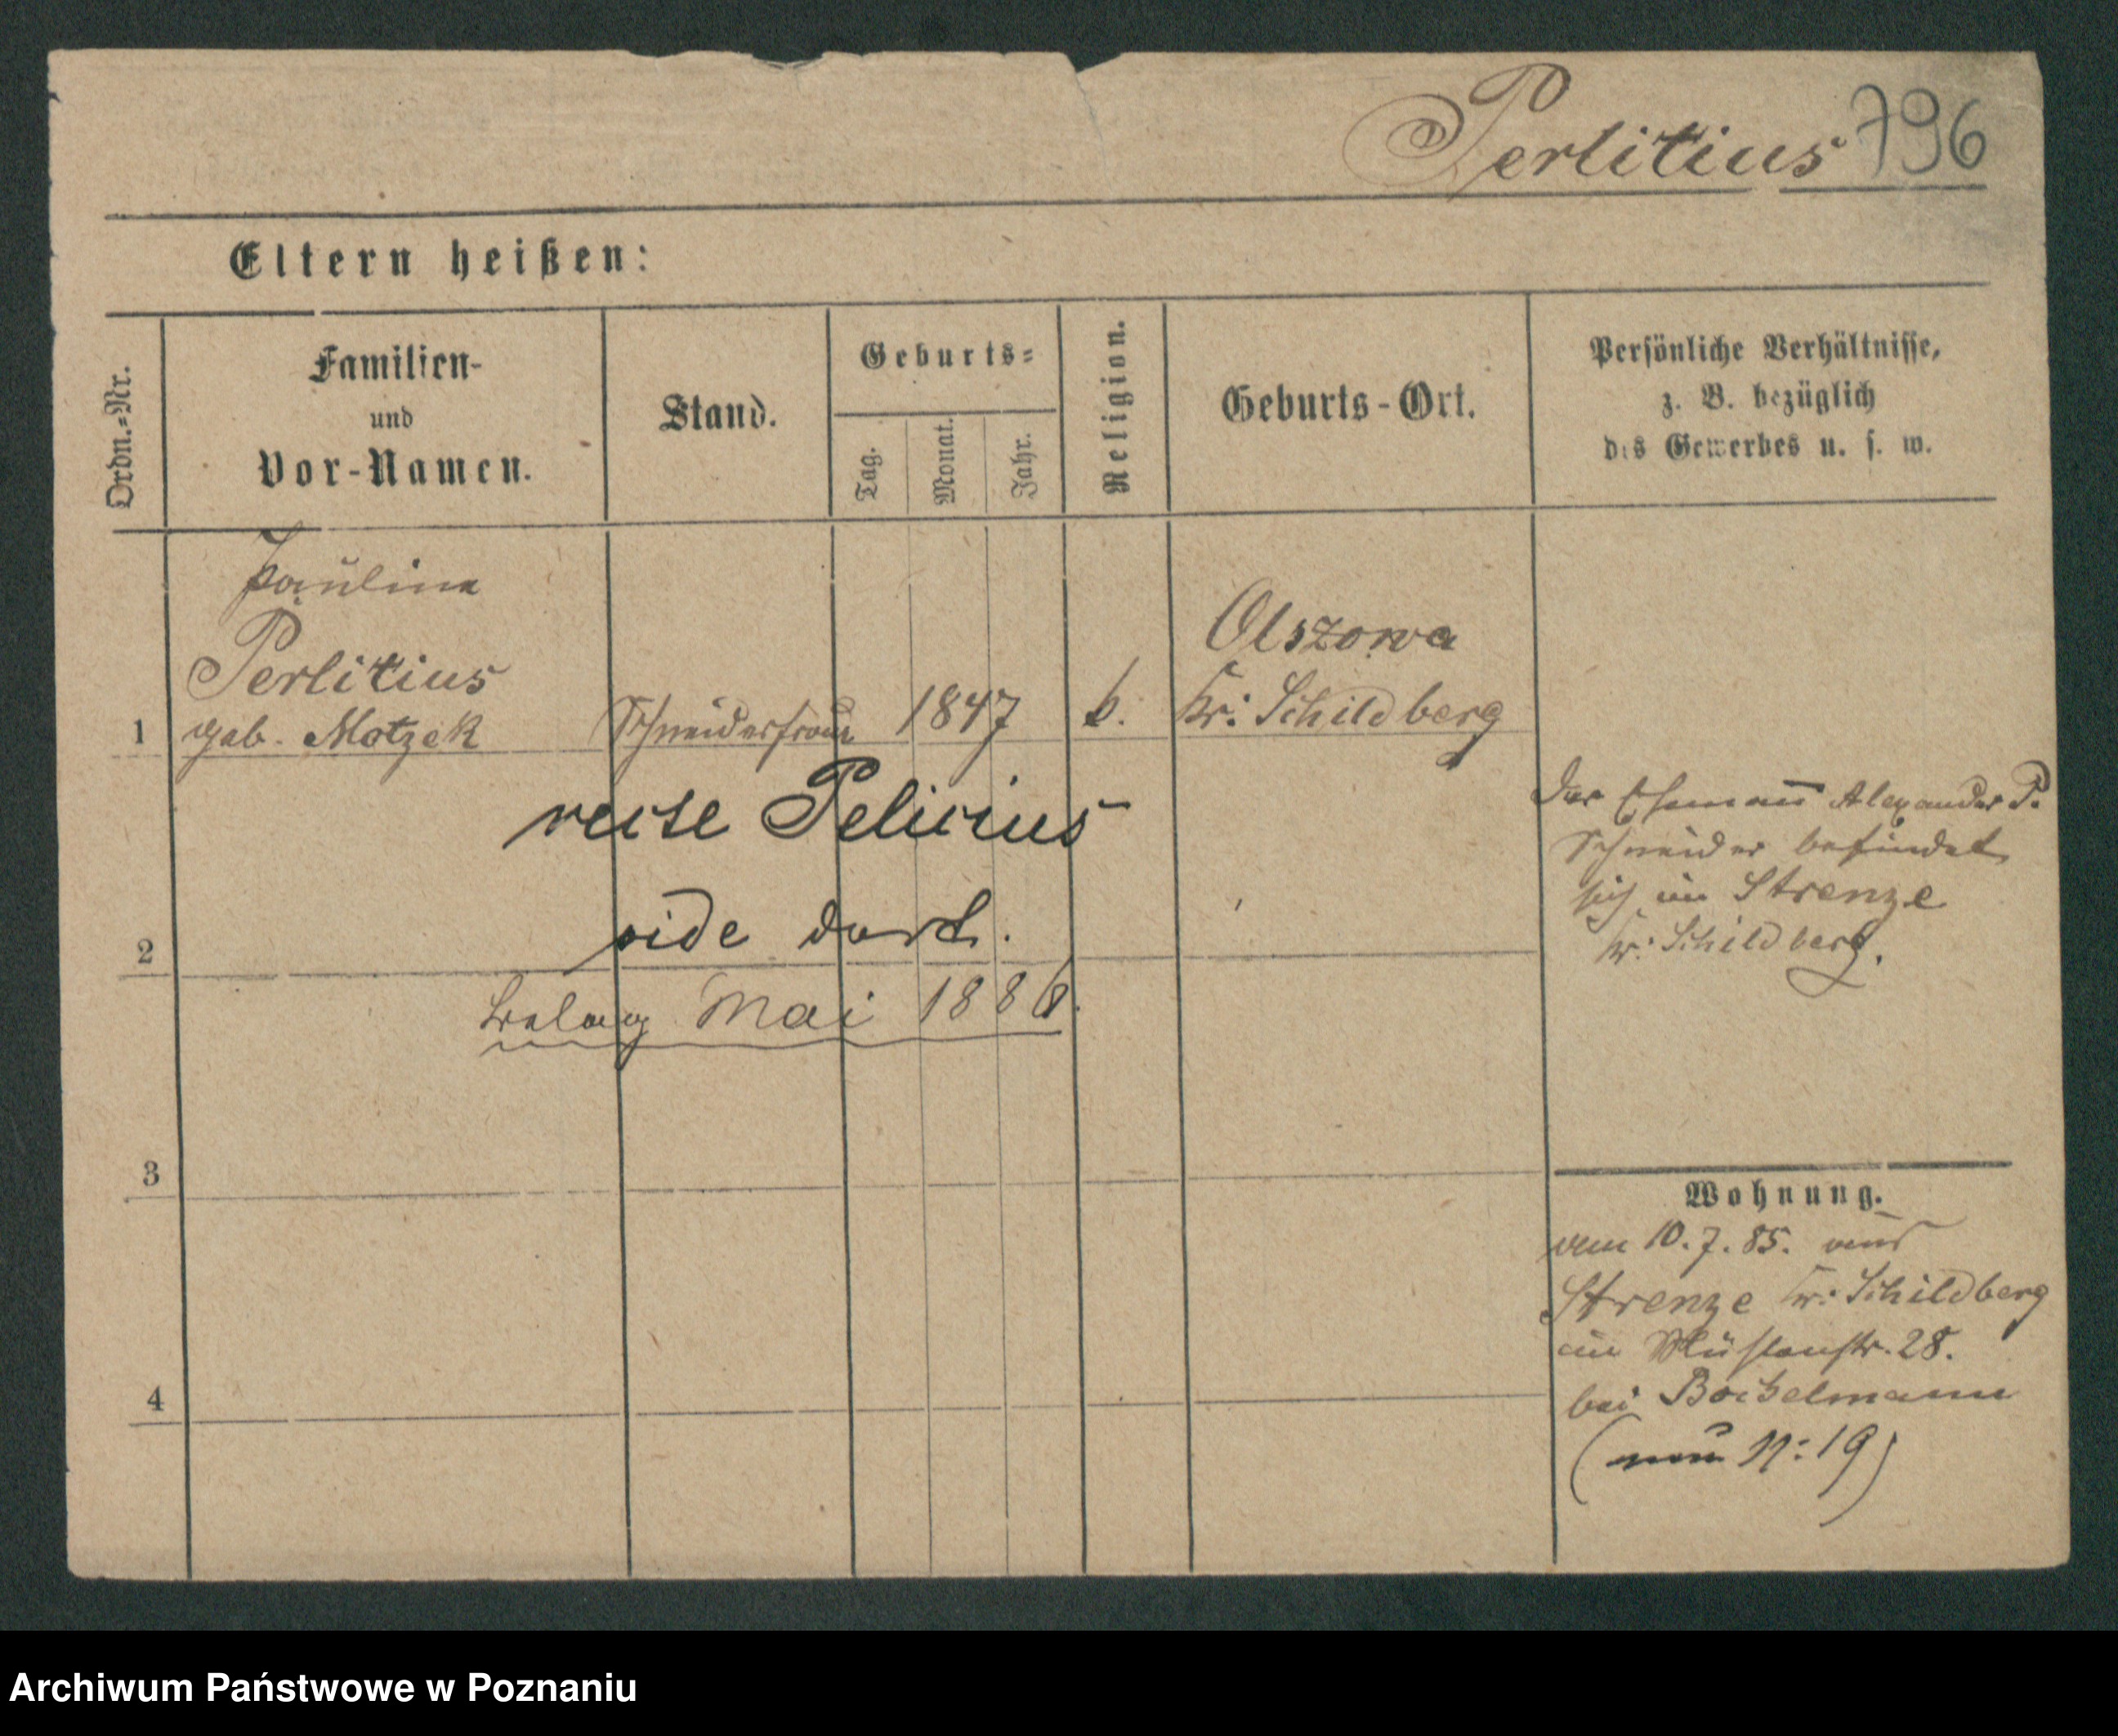 Perlitius 796
Eltern heißen:
Ordn.=Nr.
Familien-
und
Vor-Namen.
Stand.
Geburts=
Tag.
Monat.
Jahr.
Religion.
Geburts-Ort.
Persönliche Verhältnisse,
z. B. bezüglich
des Gewerbes u. s. w.
Pauline
Perlitius
geb. Motzek
1
Schneiderfrau
1847
k.
Olszowa
Kr: Schildberg
Pelicius
vide dort.
2
Mai 1886.
Der Ehemann Alexander P.
Schneider befindet
sich in Strenze
Kr: Schildberg.
3
4
Wohnung.
10.7.85. aus
Strenze Kr: Schildberg
Mühlenstr. 28.
bei
(neu N: 19)
Archiwum Państwowe w Poznaniu